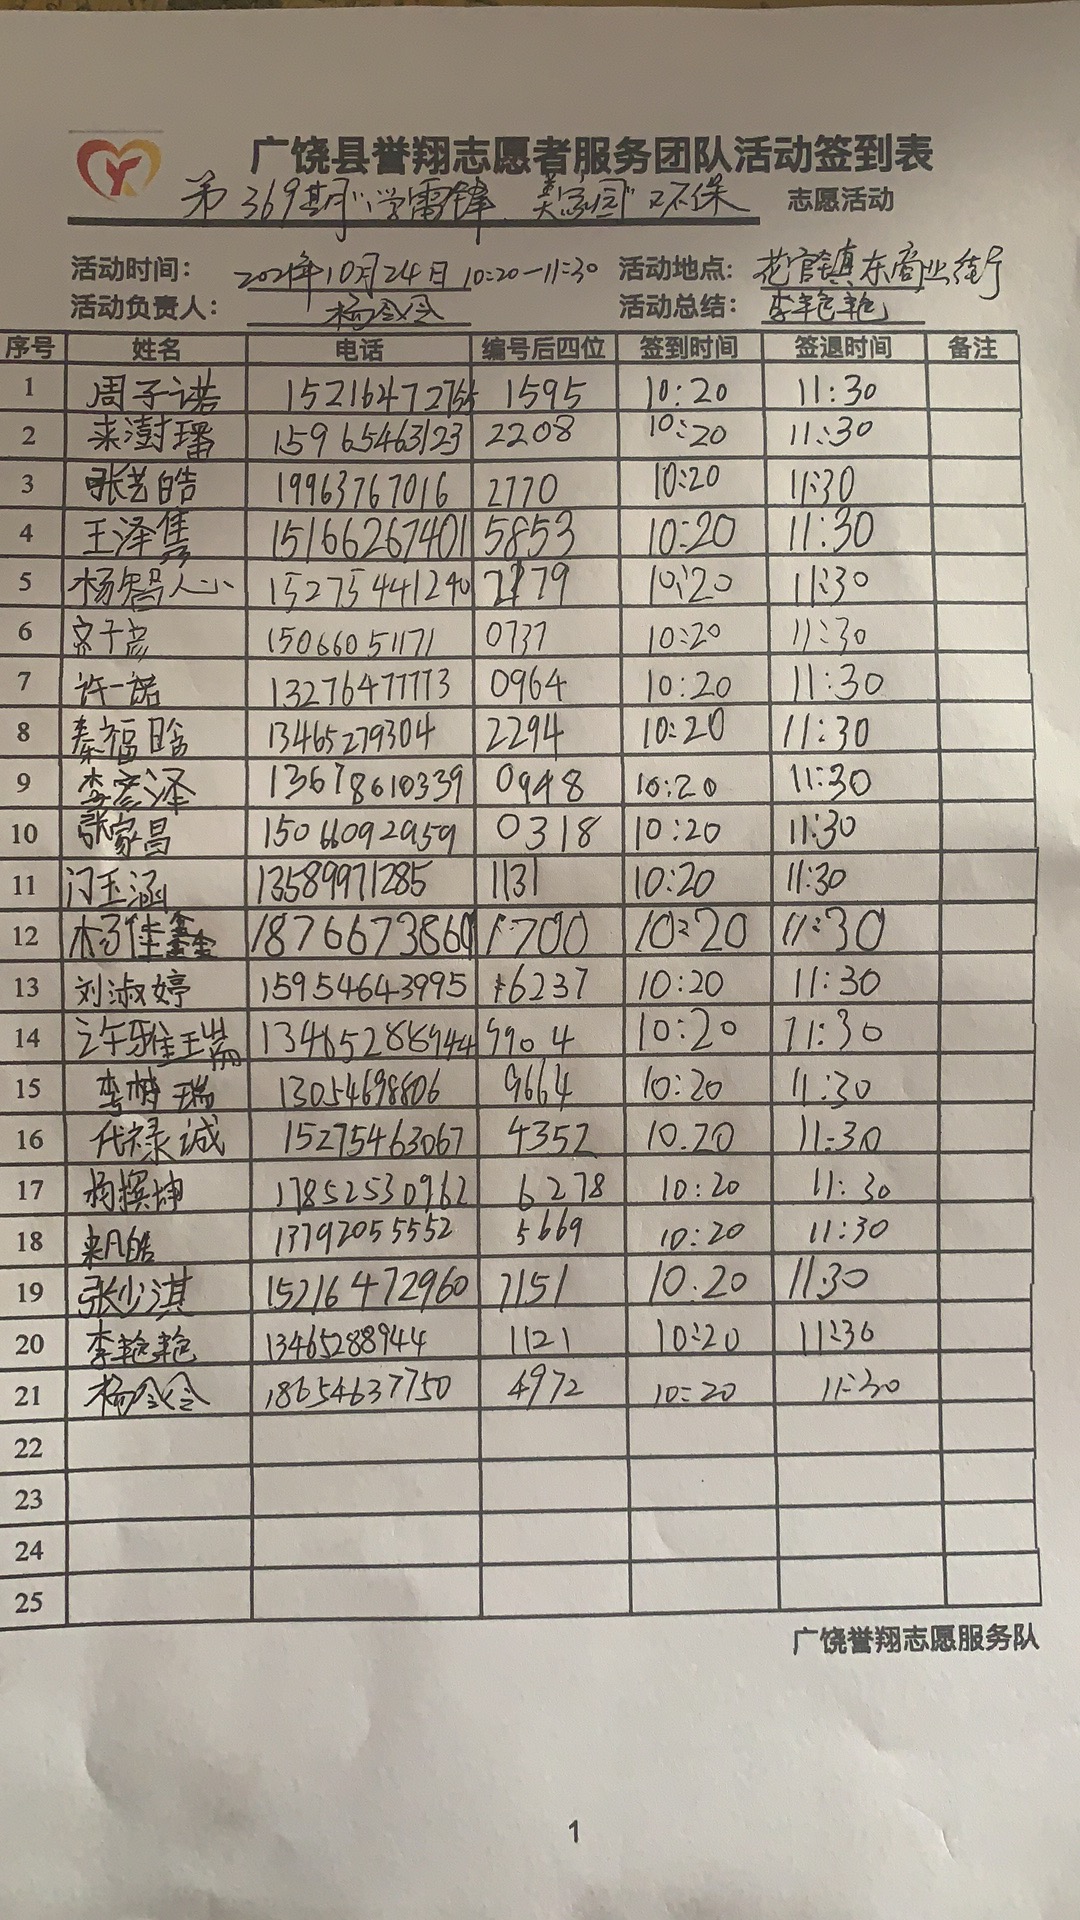 广饶县誉翔志愿者服务团队活动签到表
第369期"学雷锋、美家园"环保 志愿活动
活动时间: 2021年10月24日 10:20-11:30 活动地点: 花官镇东商业街
活动负责人: 杨令令 活动总结: 李艳艳
序号 姓名 电话 编号后四位 签到时间 签退时间 备注
1 周子诺 15216472755 1595 10:20 11:30
2 来澍璠 15965463123 2208 10:20 11:30
3 张艺皓 19963767016 2770 10:20 11:30
4 王泽隽 15166267401 5853 10:20 11:30
5 杨智人小 15275441240 2179 10:20 11:30
6 15066051171 0737 10:20 11:30
7 许一诺 13276477773 0964 10:20 11:30
8 秦福晗 13465279304 2294 10:20 11:30
9 李彦泽 13678610339 0948 10:20 11:30
10 张家昌 15066092959 0318 10:20 11:30
11 闫玉涵 13589971285 1131 10:20 11:30
12 李佳鑫 18766738601 1700 10:20 11:30
13 刘淑婷 15954643995 6237 10:20 11:30
14 许雅瑞 13465288944 9904 10:20 11:30
15 李梓瑞 13054698806 9664 10:20 11:30
16 代禄诚 15275463067 4352 10.20 11:30
17 杨撰坤 17852530962 6278 10:20 11:30
18 来凡皓 13792055552 5669 10:20 11:30
19 张少淇 15216472960 7151 10.20 11:30
20 李艳艳 13465288944 1121 10:20 11:30
21 杨令令 18654637750 4972 10:20 11:30
22
23
24
25
广饶誉翔志愿服务队
1